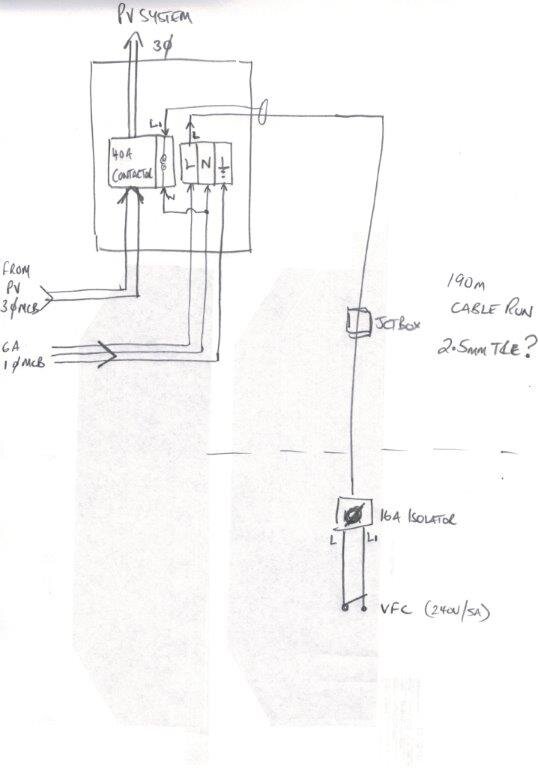 PV SYSTEM
3Ø
L1
L
40A
CONTACTOR
L N
N
FROM
PV
3Ø MCB
6A
1Ø MCB
JCTBOX
190m
CABLE RUN
2.5mm T&E?
16A ISOLATOR
L L1
VFC (240V/5A)